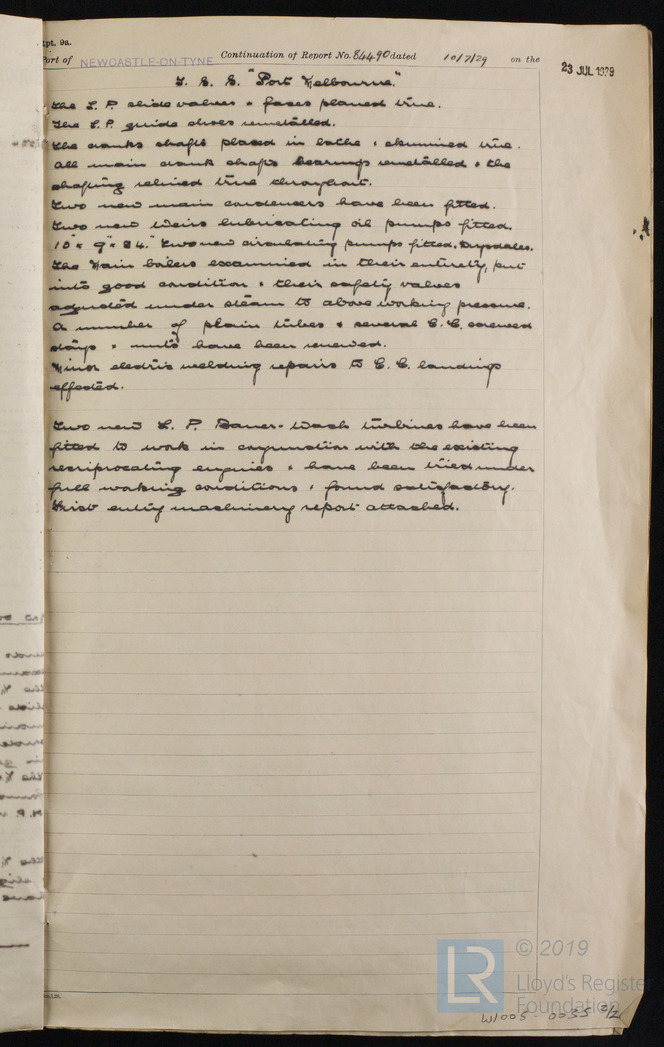 Rpt. 9a.
Port of NEWCASTLE-ON-TYNE Continuation of Report No. 84490 dated 10/7/29 on the
23 JUL 1929
T. S. S. "Port Melbourne."
The L. P. slide valves & faces planed true.
The L. P. guide shoes remetalled.
The cranks shafts placed in lathe & skimmed true.
All main crank shafts bearings remetalled & the
shafting relined true throughout.
Two new main condensers have been fitted.
Two new Weirs lubricating oil pumps fitted.
10" × 9" × 24." Two new circulating pumps fitted, Drysdales.
The Main boilers examined in their entirety, put
into good condition & their safety valves
adjusted under steam to above working pressure.
A number of plain tubes & several C. C. screwed
stays & nuts have been renewed.
Minor electric welding repairs to C. C. landings
effected.
Two new L. P. Bauer-Wach turbines have been
fitted to work in conjunction with the existing
reciprocating engines & have been tried under
full working conditions & found satisfactory.
First entry machinery report attached.
© 2019
Lloyd's Register
Foundation
W1005-0035 2/2